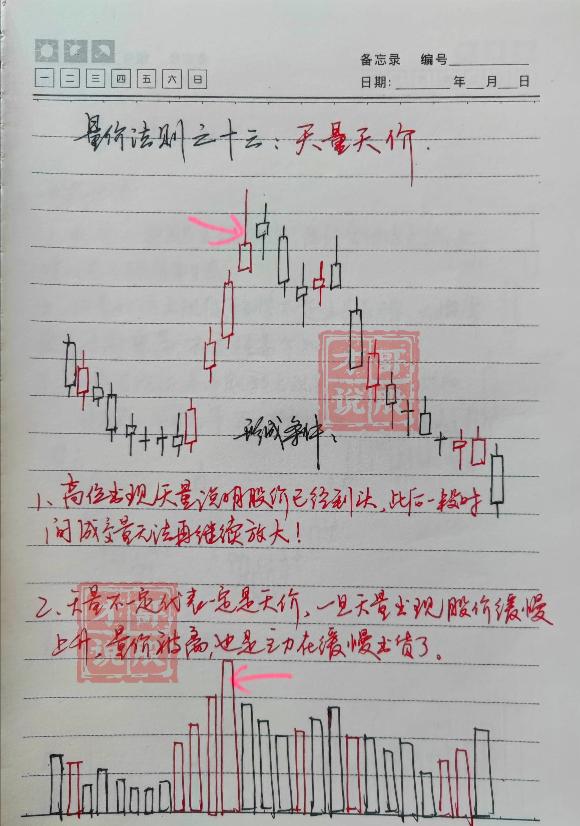 备忘录 编号
一 二 三 四 五 六 日
日期: 年 月 日
量价法则之十三:天量天价.
形成条件:
1、高位出现天量说明股价已经到头,此后一段时
间成交量无法再继续放大!
2、天量不一定代表一定是天价,一旦天量出现股价缓慢
上升,量价被离,也是主力在缓慢出货了。